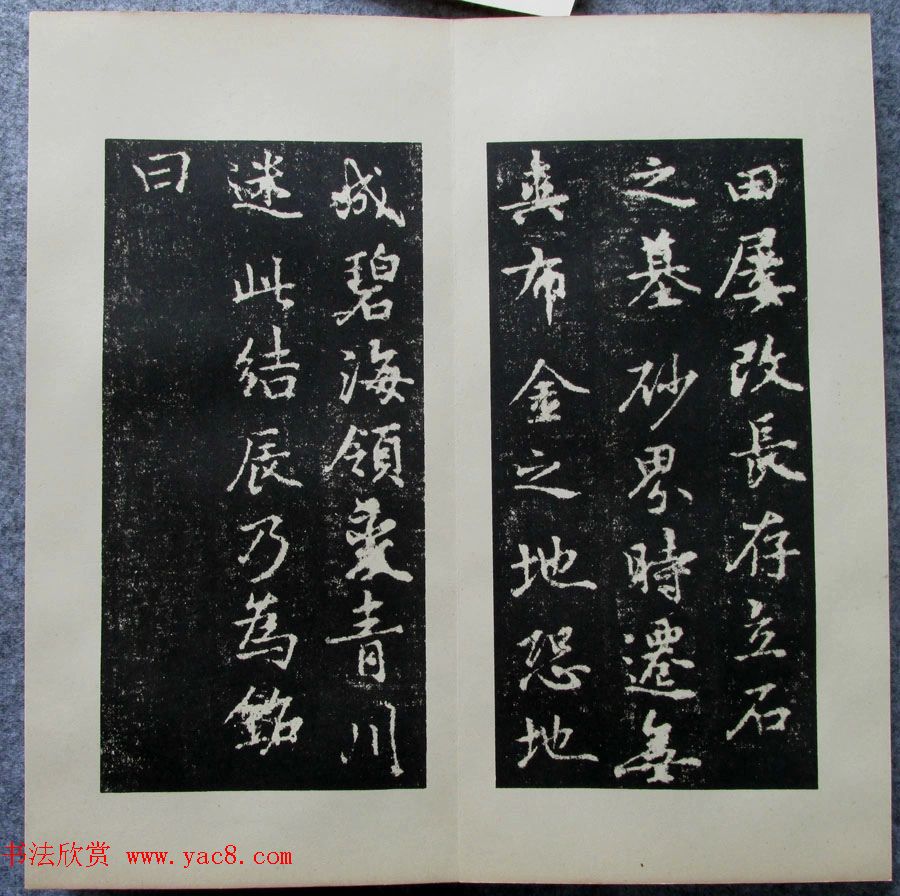 田屢改長存立石
之基砂界時遷無
爽布金之地恐地
成碧海領變青川
述此結辰乃為銘
曰
书法欣赏 www.yac8.com